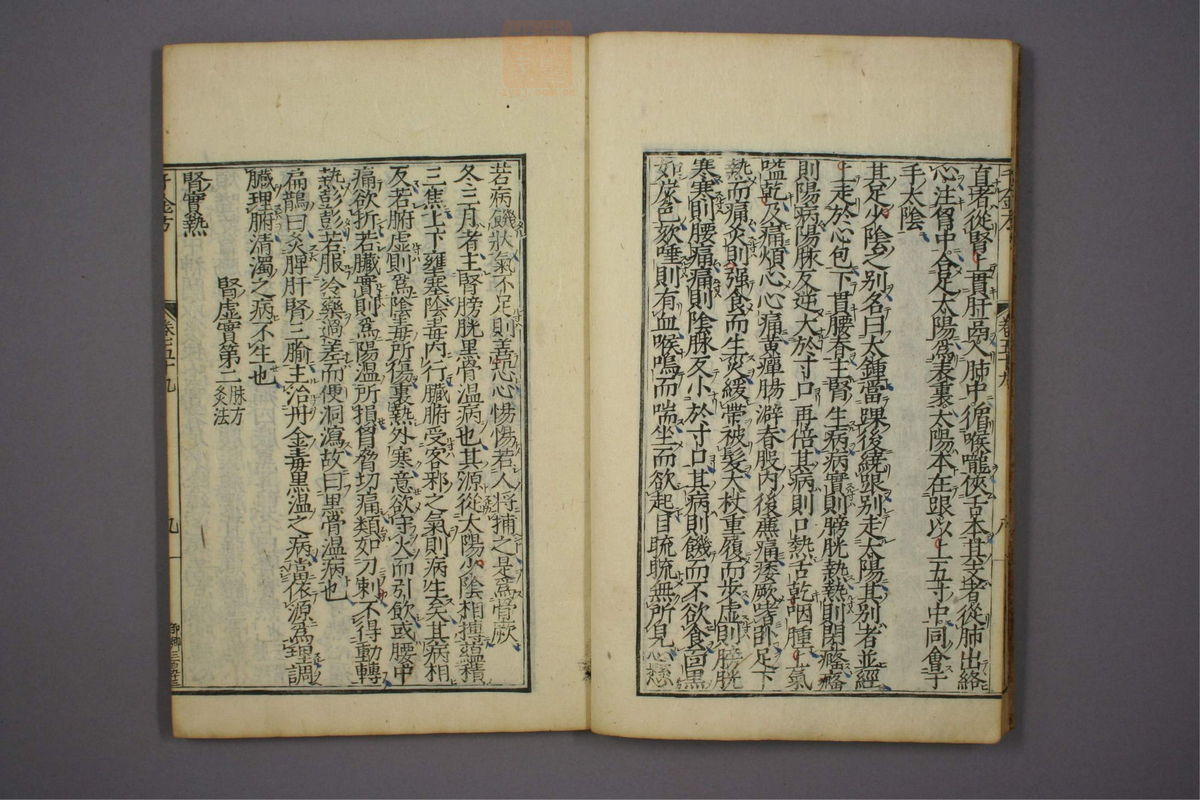 直者從腎上貫肝鬲入肺中循喉嚨俠舌本其支者從肺出絡
心注胷中合足太陽爲表裏太陽本在跟以上五寸中同會于
手太陰
其足少陰之別名曰大鍾當踝後繞跟別走太陽其別者並經
上走於心包下貫腰脊主腎生病病實則膀胱熱熱則閉癃癃
則陽病陽脉反逆大於寸口再倍其病則口熱舌乾咽腫上氣
嗌乾及痛煩心心痛黃癉腸澼脊股內後廉痛痿厥嗜卧足下
熱而痛灸則强食而生灾緩帶被髮大杖重履而步虛則膀胱
寒寒則腰痛痛則陰脉反小於寸口其病則饑而不欲食面黑
如炭色欬唾則有血喉鳴而喘坐而欲起目䀮䀮無所見心懸
若病饑狀氣不足則善恐心惕惕若人將捕之是爲骨厥
冬三月者主腎膀胱黑骨溫病也其源從太陽少陰相搏蘊積
三焦上下壅塞陰毒內行臟腑受客邪之氣則病生矣其病相
反若腑虛則爲陰毒所傷裏熱外寒意欲守火而引飲或腰中
痛欲折若臟實則爲陽溫所損胷脅切痛類如刀刺不得動轉
熱彭彭若服冷藥過差而便洞瀉故曰黑骨溫病也
扁鵲曰灸脾肝腎三腧主治丹金毒黑溫之病當依源爲理調
臟理腑清濁之病不生也
腎虛實第二 脉方 灸法
腎實熱
千金方
卷之五十九
九